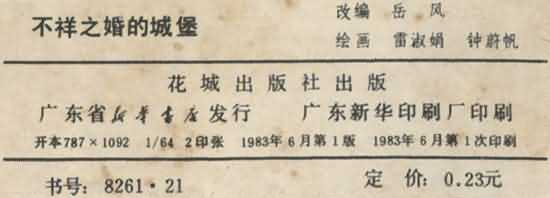 不祥之婚的城堡
改编 岳风
绘画 雷淑娟 钟蔚帆
花城出版社出版
广东省新华书店发行 广东新华印刷厂印刷
开本787×1092 1/64 2印张 1983年6月第1版 1983年6月第1次印刷
书号：8261·21 定价：0.23元